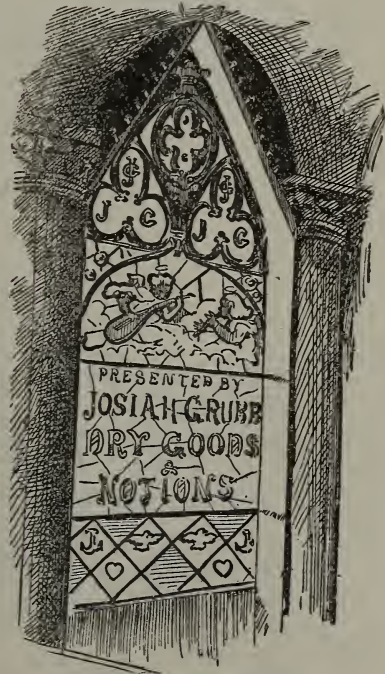 J G
J G
PRESENTED BY
JOSIAH GRUBB
DRY GOODS
&
NOTIONS